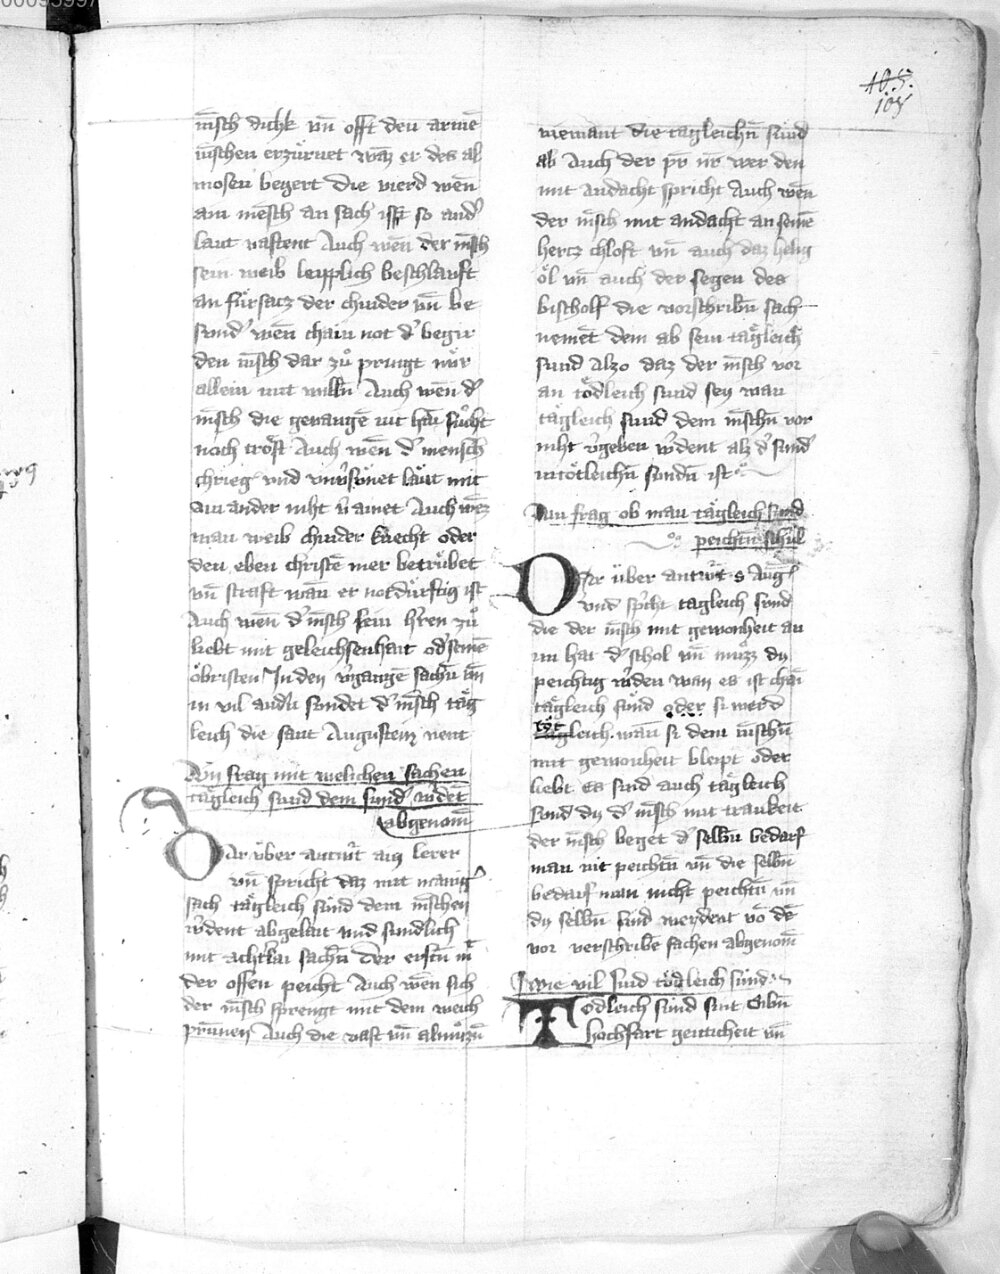 105.
105
mẽsch dichk vñ offt den armẽ
mẽschen erzurnet waz er des al
mosen begert die vierd wẽn
ain mẽsch an sach isst so and̾
laut vastent Auch wẽn der mẽsch
sein weib leipplich beschlauft
an fürsacz der chinder vñ be
sund̾ wẽn chain not d̾ begir
den mẽsch dar zů pringt nůr
allein mit willñ Auch wẽn d̾
mẽsch die gevangẽ nit haĩ sůcht
noch tröst Auch wẽn d̾ mensch
chrieg vnd vnv̾sůnet läut mit
ain ander niht v̾ainet Auch wẽ
man weib chinder knecht oder
den eben christẽ mer betrübet
vñ straft wãn er notdürftig ist
Auch wẽn d̾ mẽsch sein h̾ren zů
liebt mit geleichsenhait od̾ seinẽ
öbristen In den v̾gangẽ sachñ vñ
in vil andñ sündet d̾ mẽsch täg
leich die sant Augustein nent
Ain frag mit welichen sachen
tägleich sund dem sund̾ w̾det
abgenom̃
Dar über antw̾t ain lerer
vñ spricht daz mit manig̾
sach tägleich sünd dem mẽschen
w̾dent abgelait vnd sundlich
mit achtlai sachñ Der erstñ mĩt
der offen peicht Auch wẽn sich
der mẽsch sprengt mit dem weich
prũnen Auch die vast vñ almůzñ
niemant die tägleichñ sünd
ab Auch der pr̃ nr̃ wer den
mit andacht spricht Auch wẽn
der mẽsch mit andacht an seinẽ
hercz chloft vñ auch daz heilig
öl vñ auch der segen des
bischolf die vorschribñ sach
nemẽt dem ab sein tägleich
sund Alzo daz der mẽsch vor
an tödleich sund sey wan
tägleich sünd dem mẽschñ vor
niht v̾geben w̾dent alz d̾ sünd
in tötleichñ sundñ ist
Ain frag ob man tägleich sund
peichtñ schül
Dar über antw̾t s Aug̾
vnd sp̾cht tägleich sund
die der mẽsch mit gewonheit an
im hat d̾ schol vñ můzz dy
peichtig w̾den wan es ist chaĩ
tägleich sünd oder si werd
töt
tägleich wãn si dem mẽschñ
mit gewonheit bleipt oder
liebt Es sind auch tägleich
sund dy d̾ mẽsch mit krankeit
der mẽsch beget d̾ selbñ bedarf
man nit peichtñ vñ die selbñ
bedarf man nicht peichtñ vñ
dy selbñ sünd werdent vö dẽ
vor verschribẽ sachen abgenom̃
Wie vil sind tödleich sünd
Tödleich sünd sint Sibñ
hochfart geiticheit vñ